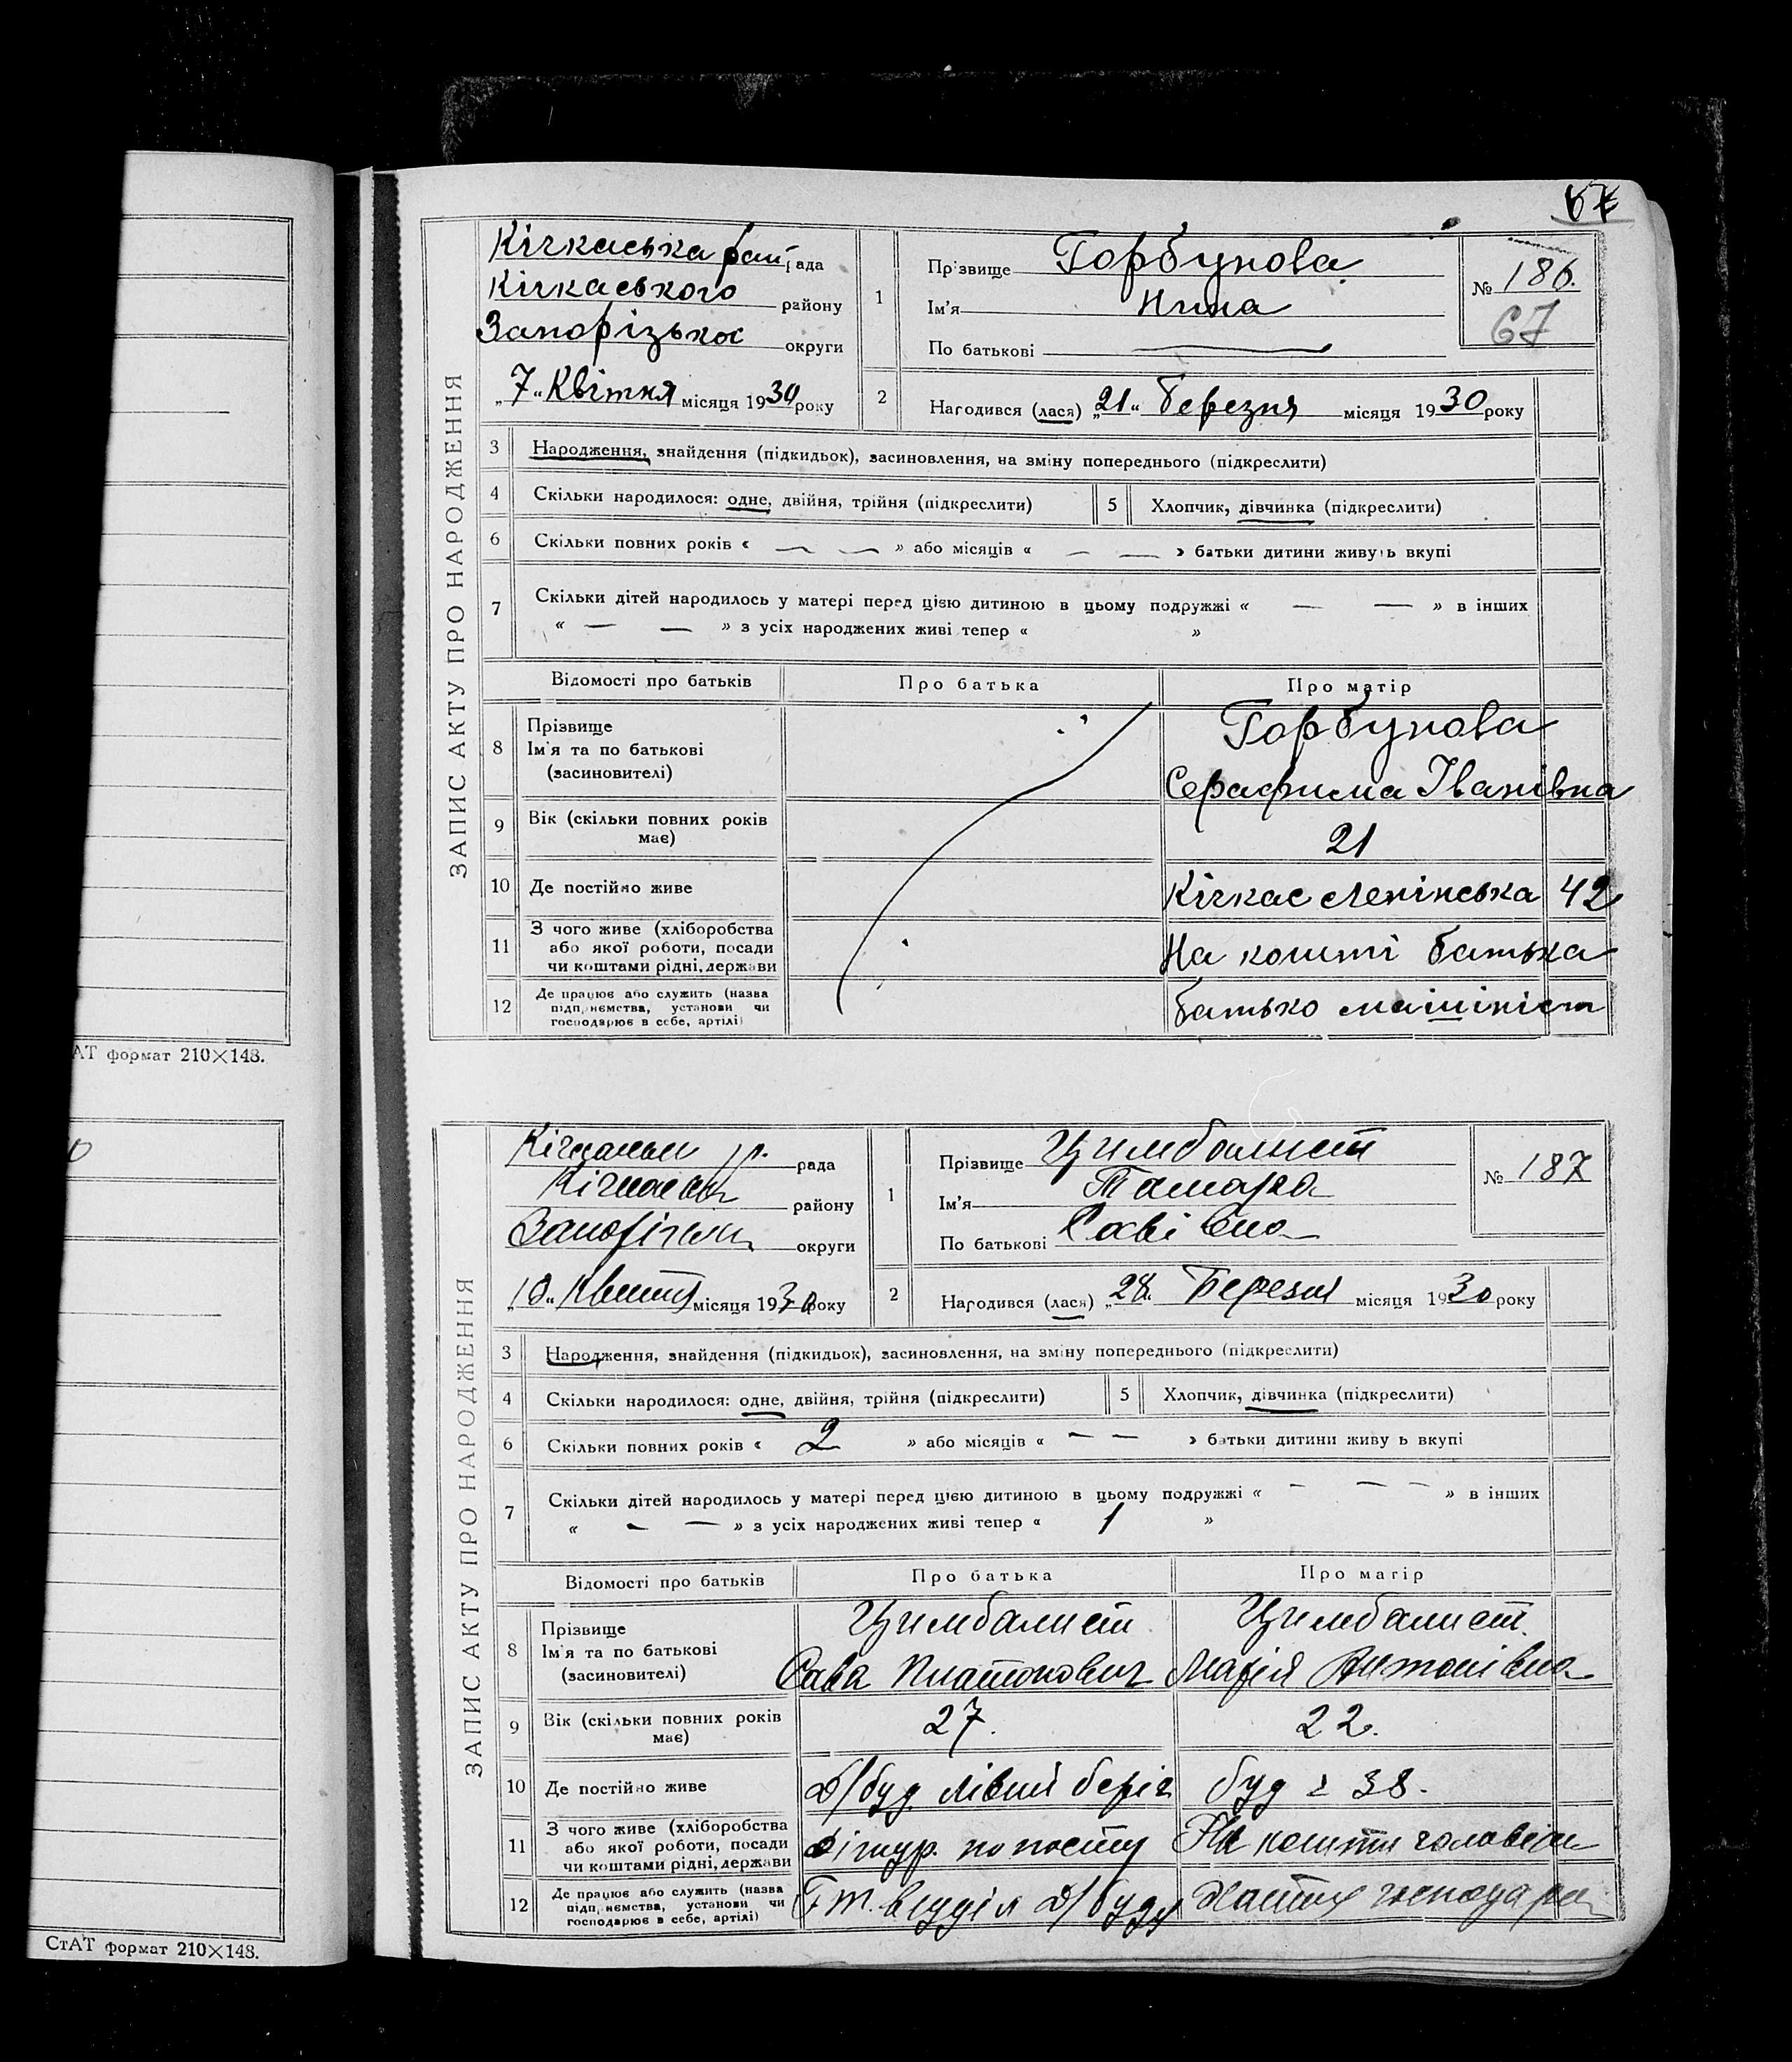 67
Кічкаська рай рада
Кічкаського району
Запорізькоє округи
„7“ Квітня місяця 1930 року
1
Прізвище Горбунова
Ім'я Нина
По батькові —
№ 186.
67
2
Народився (лася) „21“ березня місяця 1930 року
ЗАПИС АКТУ ПРО НАРОДЖЕННЯ
3 Народження, знайдення (підкидьок), засиновлення, на зміну попереднього (підкреслити)
4 Скільки народилося: одне, двійня, трійня (підкреслити) 5 Хлопчик, дівчинка (підкреслити)
6 Скільки повних років « — — » або місяців « — — » батьки дитини живуть вкупі
7 Скільки дітей народилось у матері перед цією дитиною в цьому подружжі « — — » в інших
« — — » з усіх народжених живі тепер « »
Відомості про батьків Про батька Про матір
8 Прізвище
Ім'я та по батькові
(засиновителі)
Горбунова
Серафима Іванівна
9 Вік (скільки повних років має) 21
10 Де постійно живе Кічкас Ленінська 42
11 З чого живе (хліборобства
або якої роботи, посади
чи коштами рідні, держави
На кошті батька
12 Де працює або служить (назва
підприємства, установи чи
господарює в себе, артілі)
батько машиніст
АТ формат 210×148.
рада
району
округи
„10“ місяця 1930 року
1
Прізвище Цимбалист
Ім'я Тамара
По батькові Савівна
№ 187
2
Народився (лася) „28“ Березня місяця 1930 року
ЗАПИС АКТУ ПРО НАРОДЖЕННЯ
3 Народження, знайдення (підкидьок), засиновлення, на зміну попереднього (підкреслити)
4 Скільки народилося: одне, двійня, трійня (підкреслити) 5 Хлопчик, дівчинка (підкреслити)
6 Скільки повних років « 2 » або місяців « — — » батьки дитини живу ь вкупі
7 Скільки дітей народилось у матері перед цією дитиною в цьому подружжі « — — — » в інших
« — — » з усіх народжених живі тепер « 1 »
Відомості про батьків Про батька Про матір
8 Прізвище
Ім'я та по батькові
(засиновителі)
Цимбалист Цимбалист.
Сава Платонович Марія Антонівна
9 Вік (скільки повних років має) 27. 22.
10 Де постійно живе Д/буд. лівий беріг буд 2 38.
11 З чого живе (хліборобства
або якої роботи, посади
чи коштами рідні, держави
по посту На кошти чоловіка
12 Де працює або служить (назва
підприємства, установи чи
господарює в себе, артілі)
Д/буду господарка
СтАТ формат 210×148.